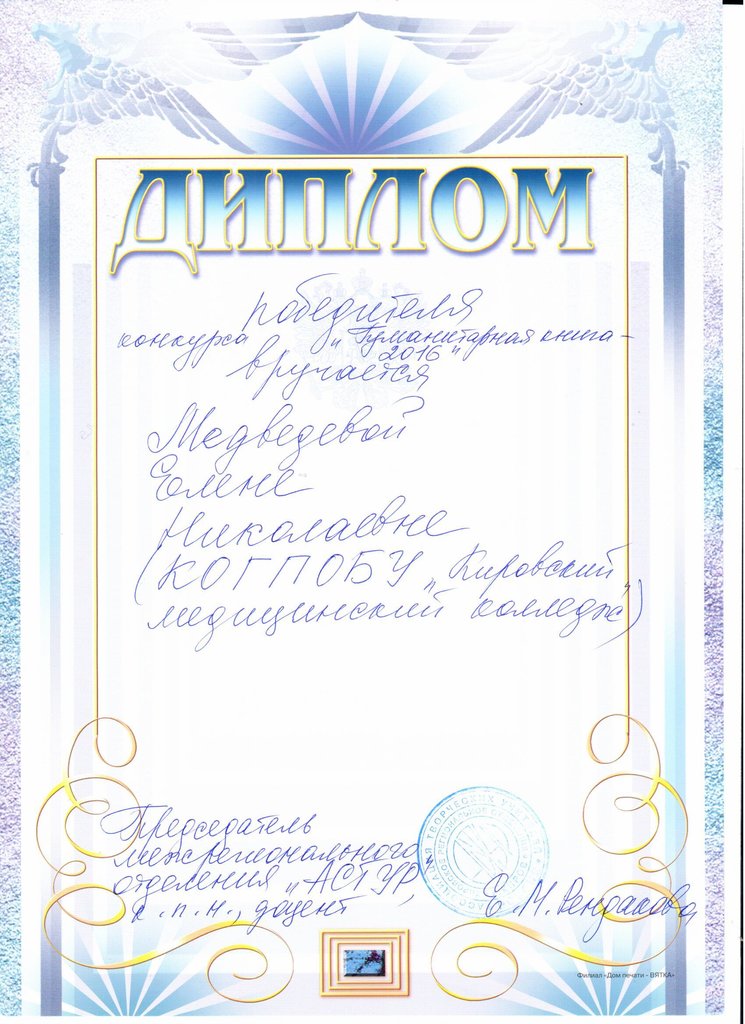 ДИПЛОМ
победителя
конкурса „Гуманитарная книга -
2016"
вручается
Медведевой
Елене
Николаевне
(КОГПОБУ „Кировский
медицинский колледж")
Председатель
межрегионального
отделения „АСТУР",
к.п.н., доцент
Е.М.
Филиал «Дом печати - ВЯТКА»